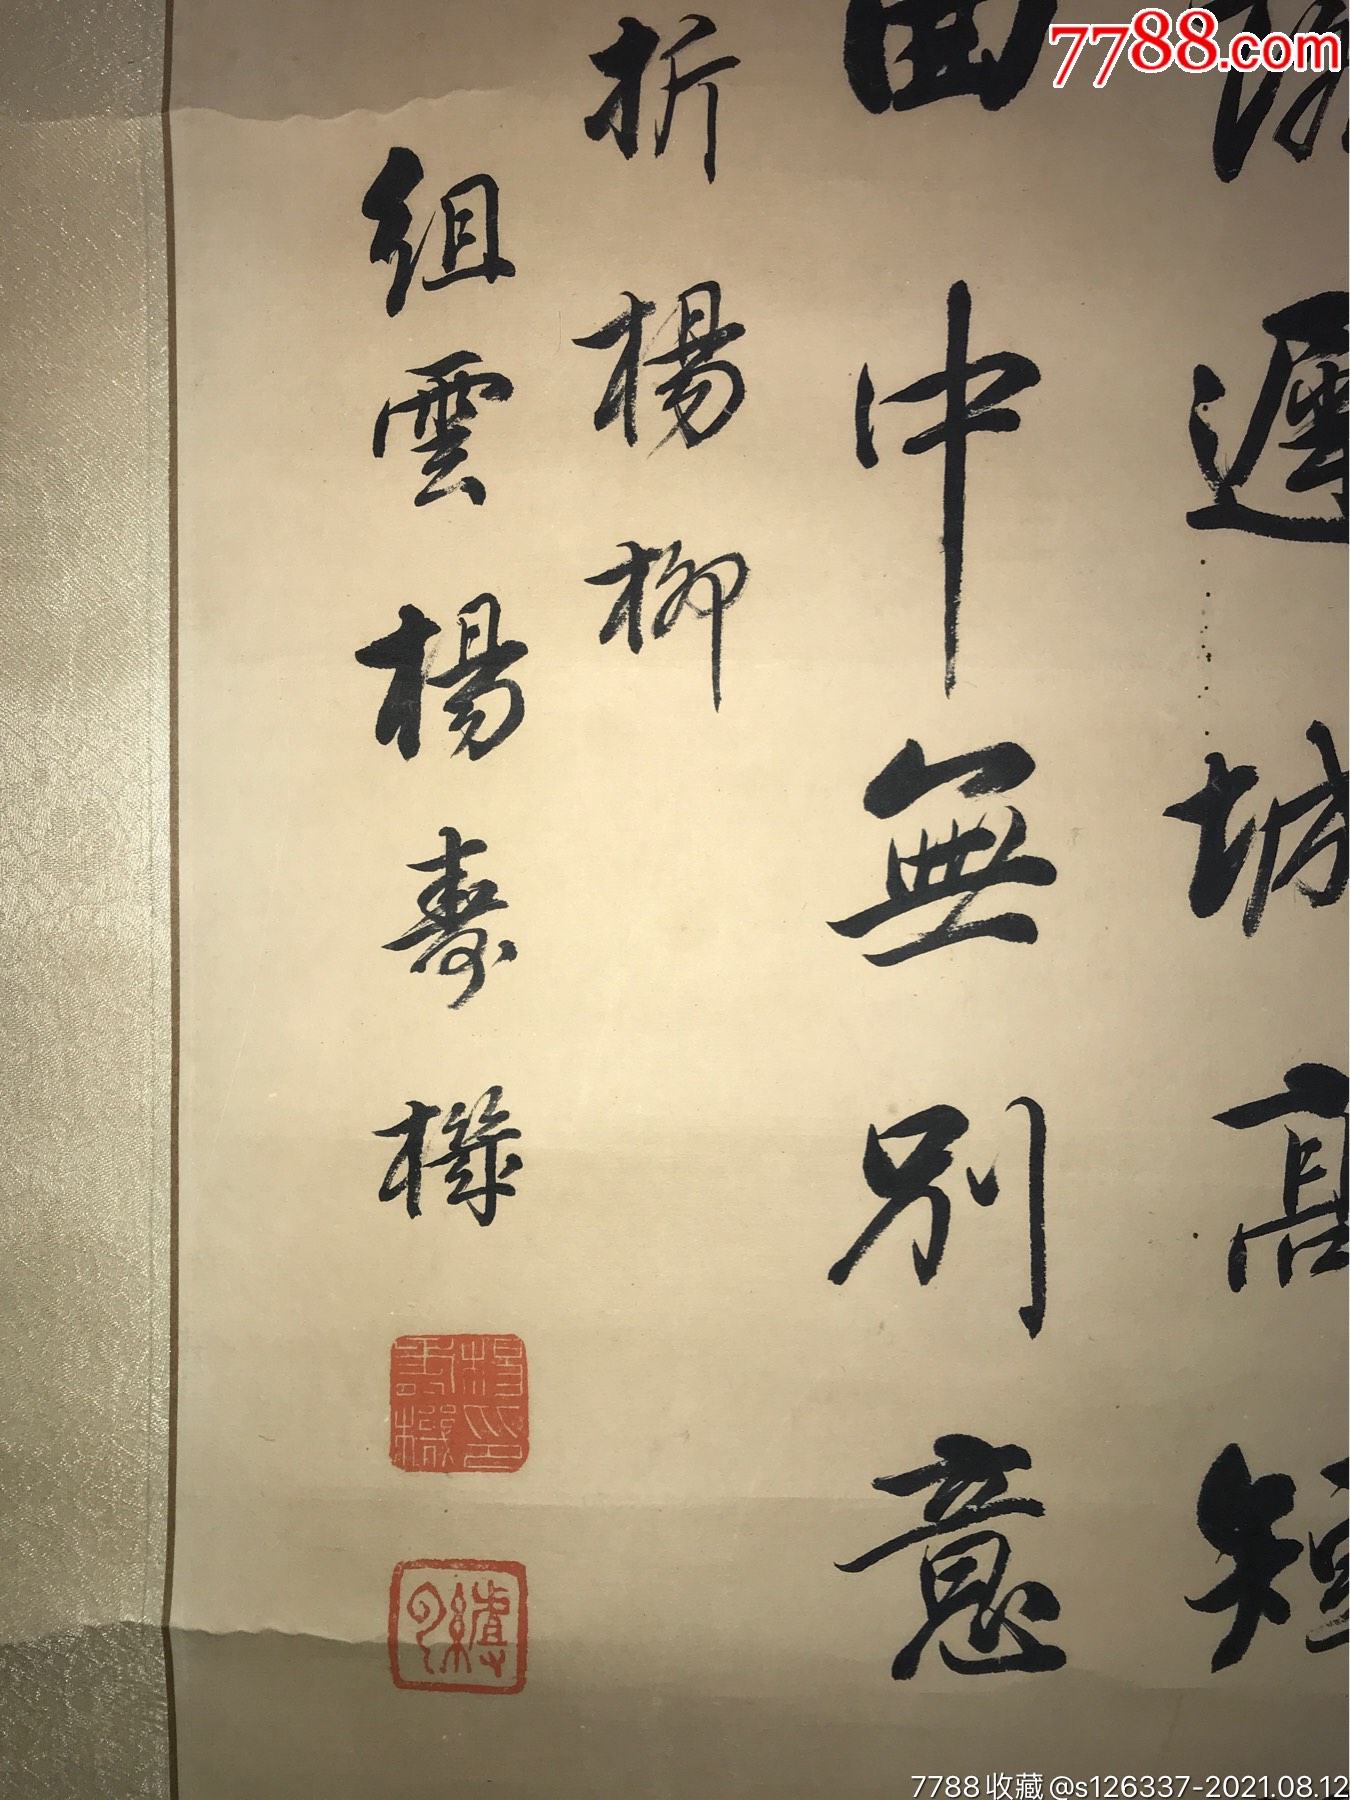 7788.com
遞城高短
曲中無別意
折楊柳
組雲楊壽機
楊壽機印
7788收藏@s126337-2021.08.12